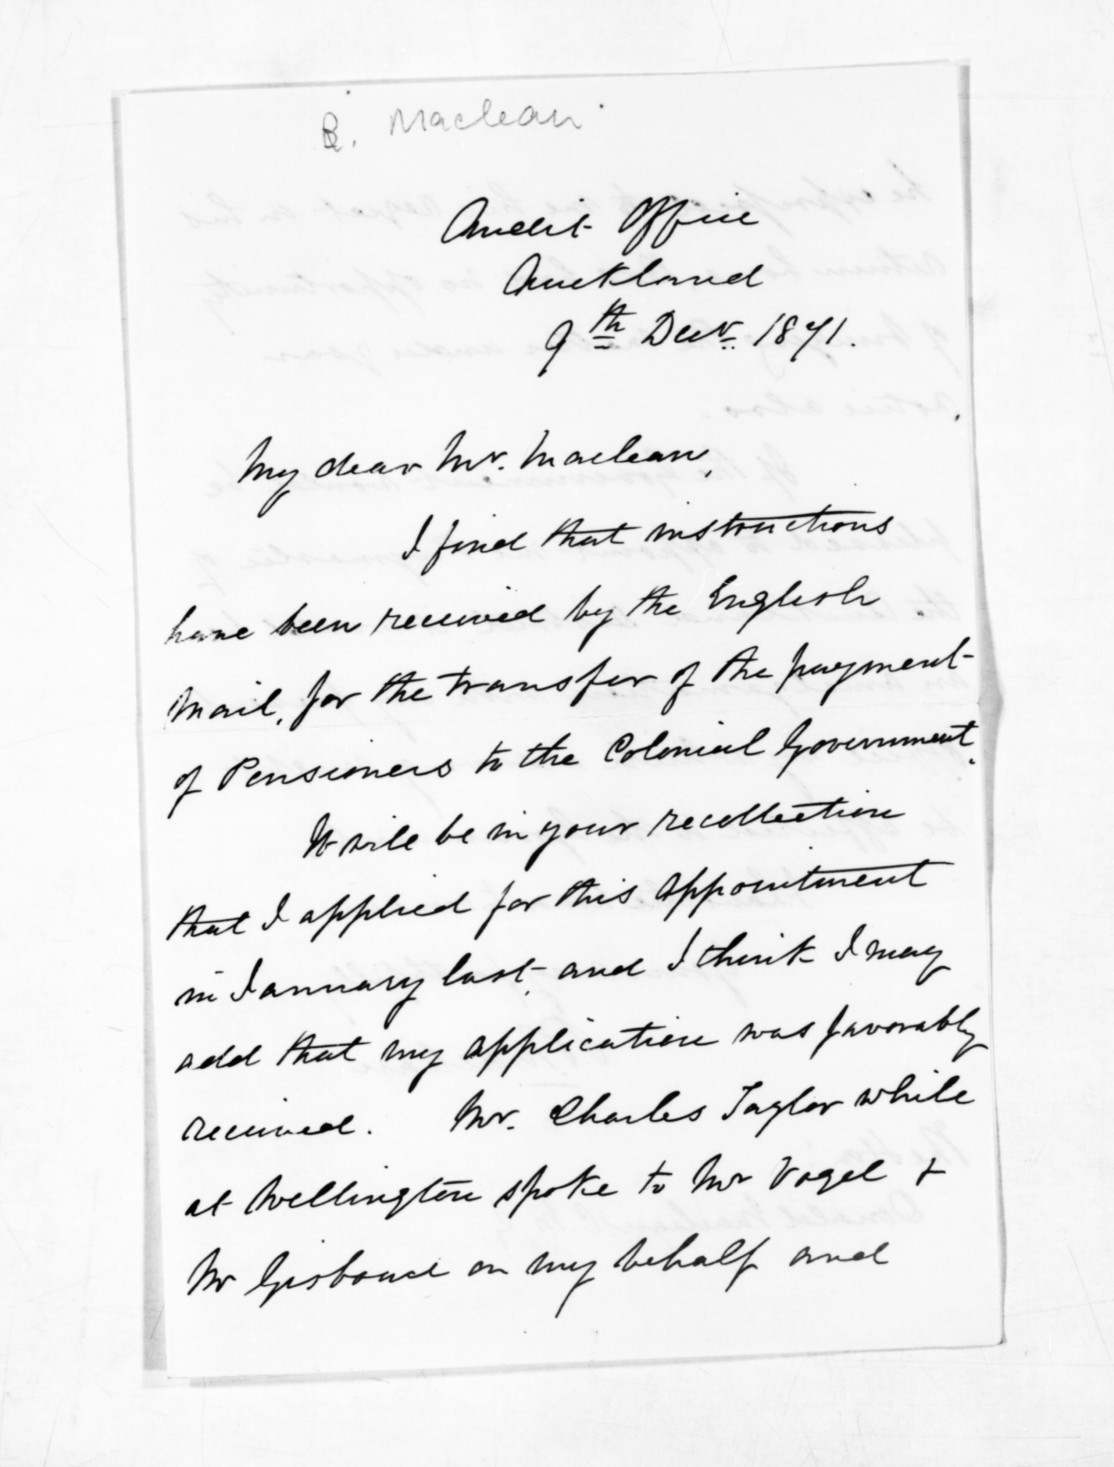 R. Maclean
Audit Office
Auckland
9th Decr. 1871.
My dear Mr. Maclean,
I find that instructions
have been received by the English
Mail, for the transfer of the payment
of Pensioners to the Colonial Government.
It will be in your recollection
that I applied for this appointment
in January last and I think I may
add that my application was favorably
received. Mr. Charles Taylor while
at Wellington spoke to Mr Vogel &
Mr Gisborne on my behalf and